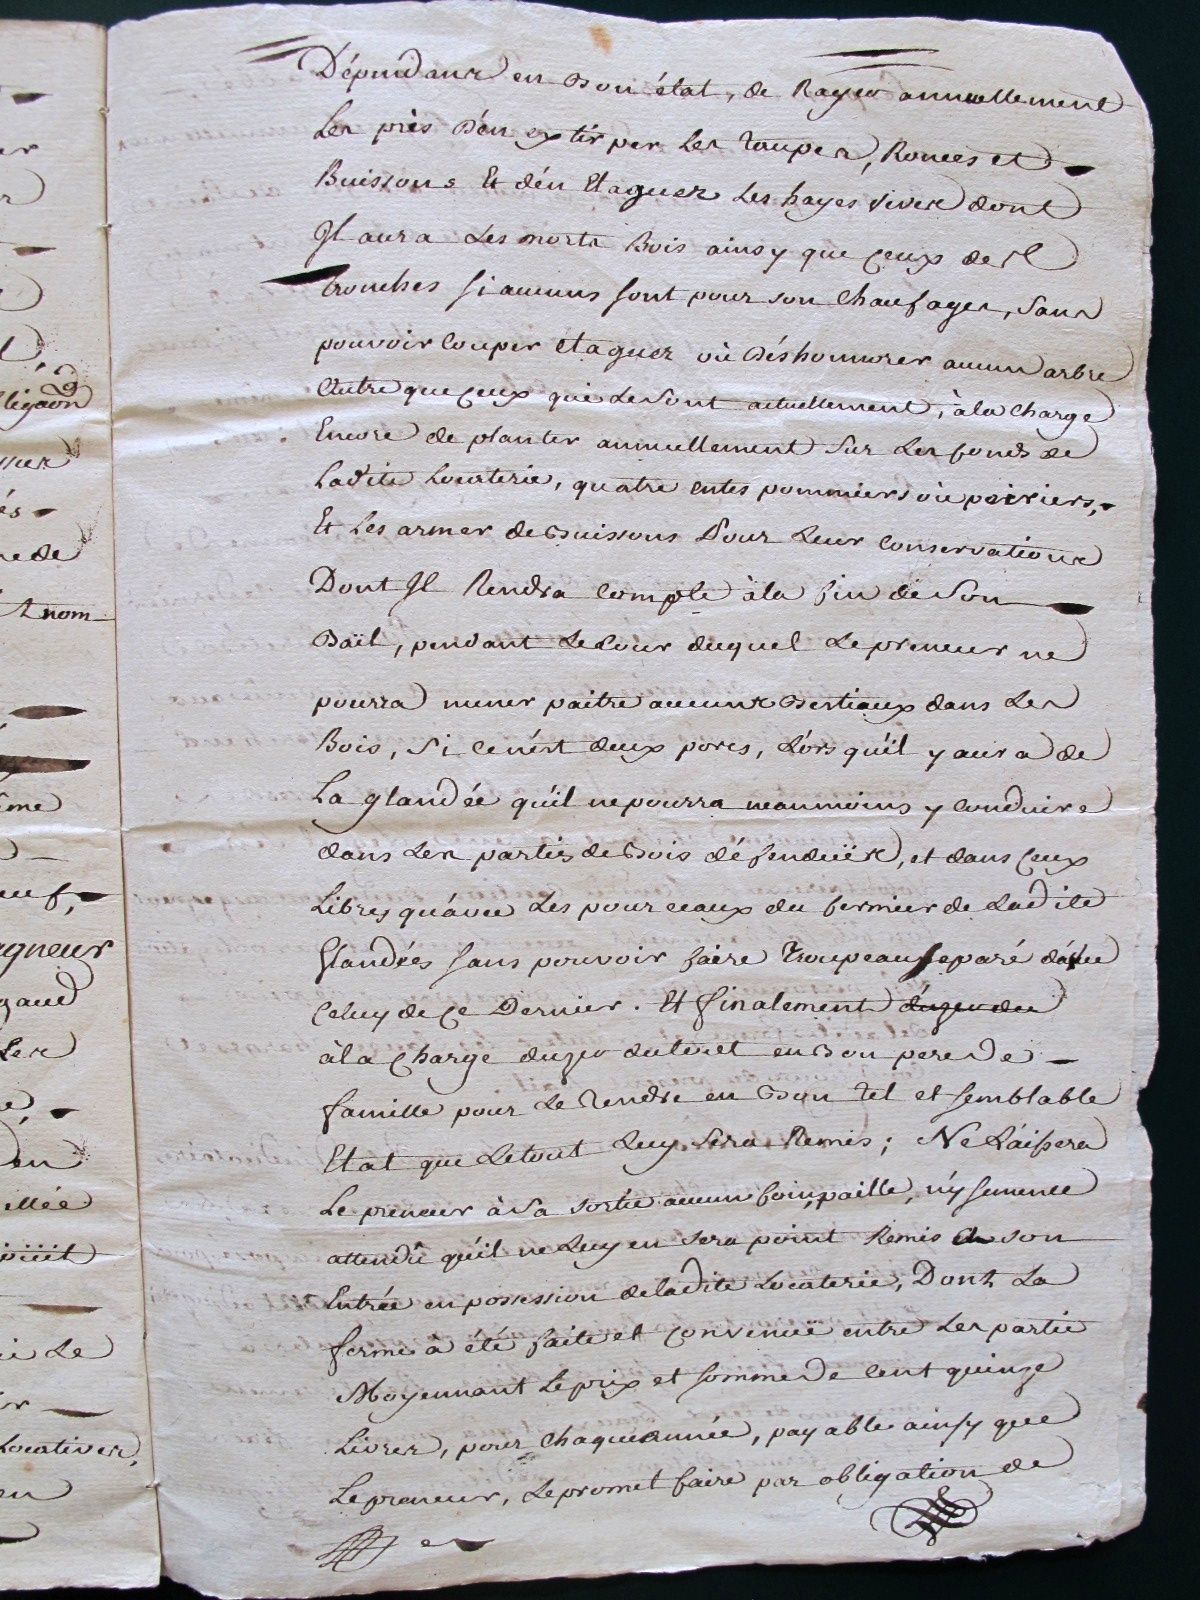 Dépendans en bon état, de Rayer annuellement
Les près d'en extirper Les taupes, Ronces et
Buissons Et d'en Etaguer Les hayes vives dont
Il aura Les morts Bois ainsy que ceux des
trouches si aucuns sont pour son Chaufages, Sans
pouvoir Couper Etaguer où Déshonnorer aucun arbre
Autre que ceux qui Le sont actuellement, à la Charge
Encore de planter annuellement Sur Les fonds de
Ladite Locaterie, quatre entes pommiers où poiriers,
Et Les armer de Buissons Pour Leur Conservations
Dont Il Rendra Compte à la fin de Son
Bail, pendant Le Cour duquel Le preneur ne
pourra mener paitre aucuns Bestiaux dans Les
Bois, Si ce n'ést deux porcs, Lors qu'il y aura de
La glandée qu'il ne pourra néanmoins y Conduire
dans Les partis de Bois défenduës, et dans ceux
Libres qu'avec Les pourceaux du fermier de Ladite
Glandées sans pouvoir faire Troupeau separé d'avec
Celuy de ce Dernier. Et finalement
à la Charge du tout en Bon pere De
famille pour Le Rendre en Bon tel et semblable
Etat que Le tout Luy Sera Remis; Ne Laissera
Le preneur à Sa sortie aucun foin, paille, n'y semence
attendû qu'il ne Luy en sera point Remis à son
Entrée en possession de ladite Locaterie, Dont La
ferme à été faite et Convenuë entre Les partie
Moyennant Le prix et somme De Cent quinze
Livres, pour Chaque année, payable ainsy que
Le preneur, Le promet faire par obligation de